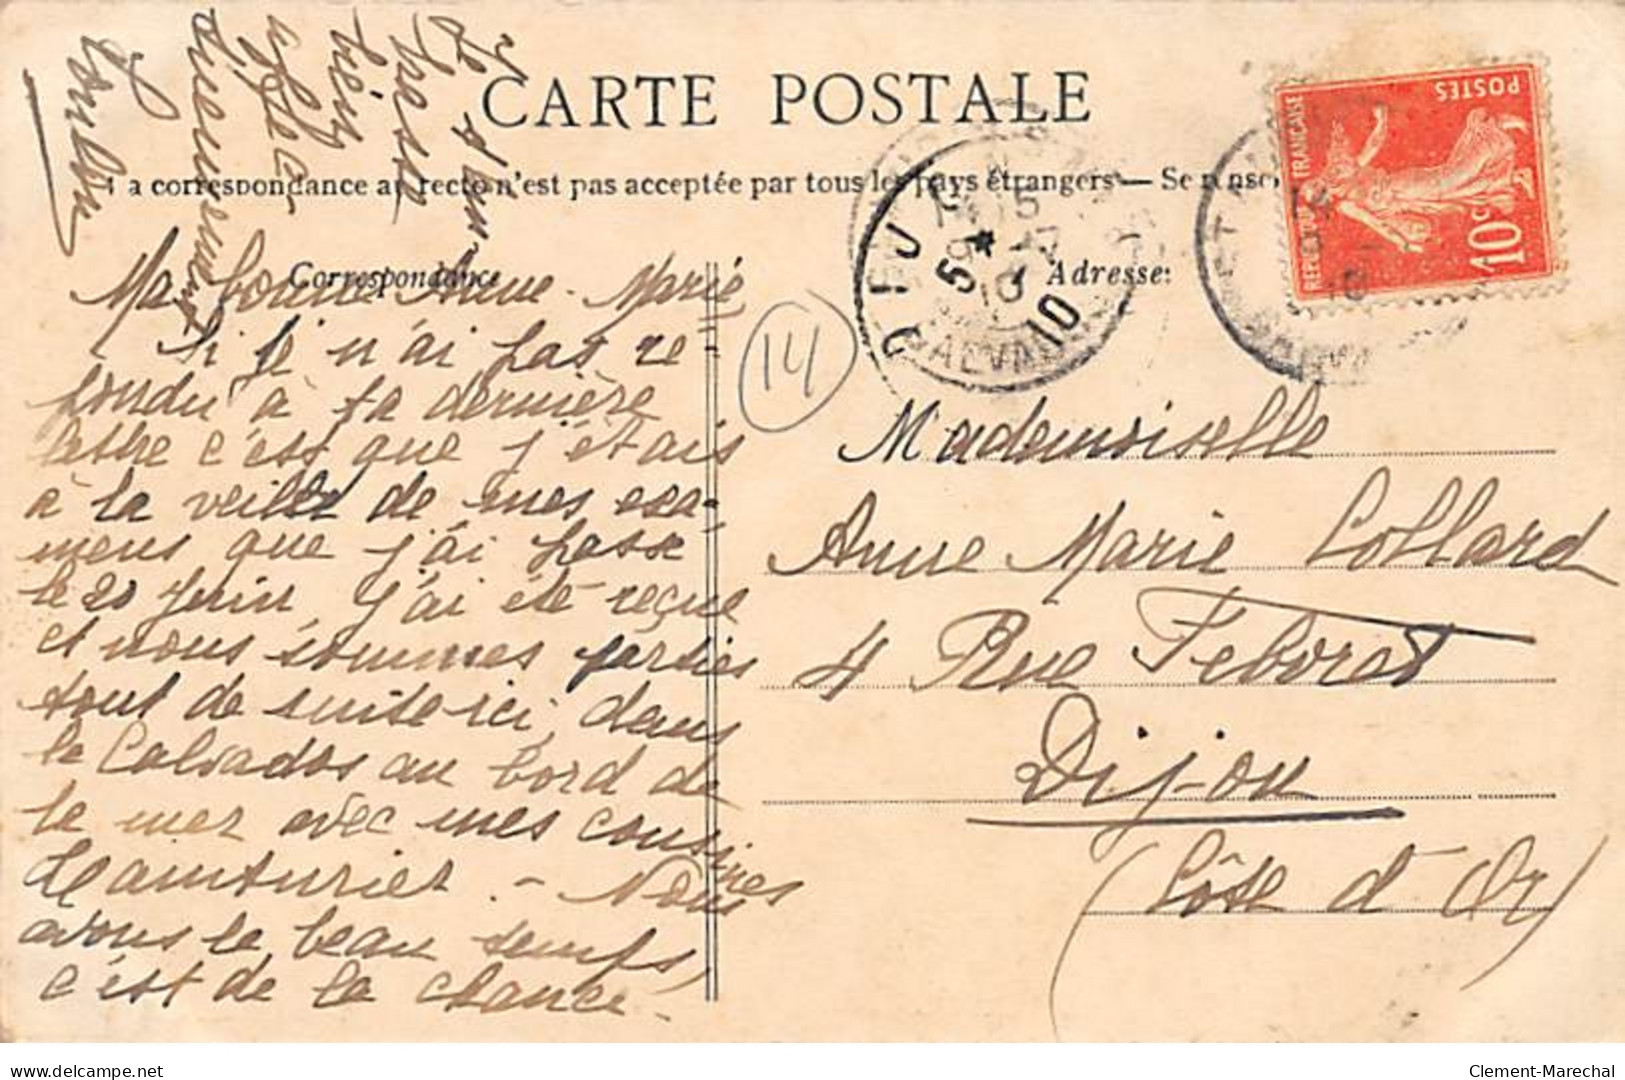 CARTE POSTALE
La correspondance au recto n'est pas acceptée par tous les pays étrangers — Se rense
Correspondance
Adresse:
POSTES
REPUBLIQUE FRANÇAISE
10c
DIJ
5 *
10
14
Ma bonne Anne-Marie
Si je n'ai pas ré
pondu à ta dernière
lettre c'est que j'étais
à la veille de mes exa-
mens que j'ai passé
le 20 Juin, j'ai été reçue
et nous sommes parties
tout de suite ici, dans
le Calvados au bord de
la mer avec mes cousines
Nous
avons le beau temps,
c'est de la chance.
Je t'em
brasse
bien
affec-
tueusement
Mademoiselle
Anne Marie Collard
4 Rue Febvret
Dijon
(Côte d'Or)
Clement-Marechal